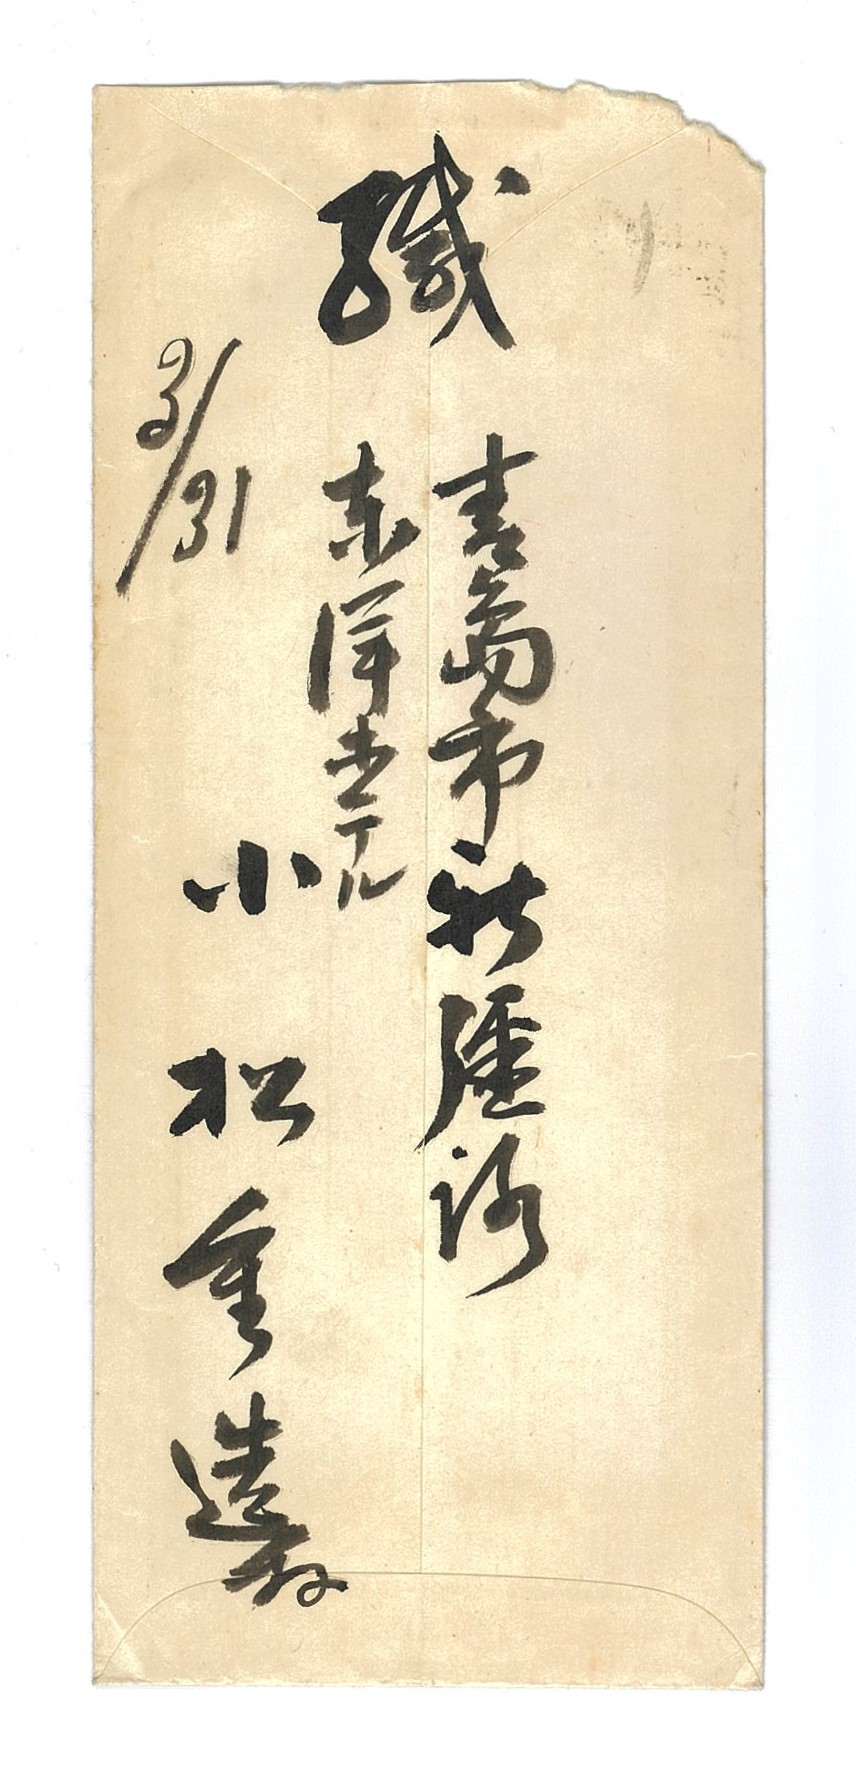 緘
青島市新疆路
東洋ホテル
小松重造
3/31